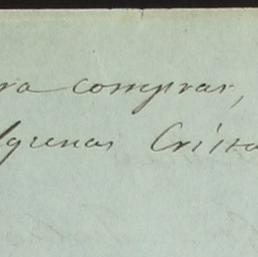 ra comprar,
lgunas Crista